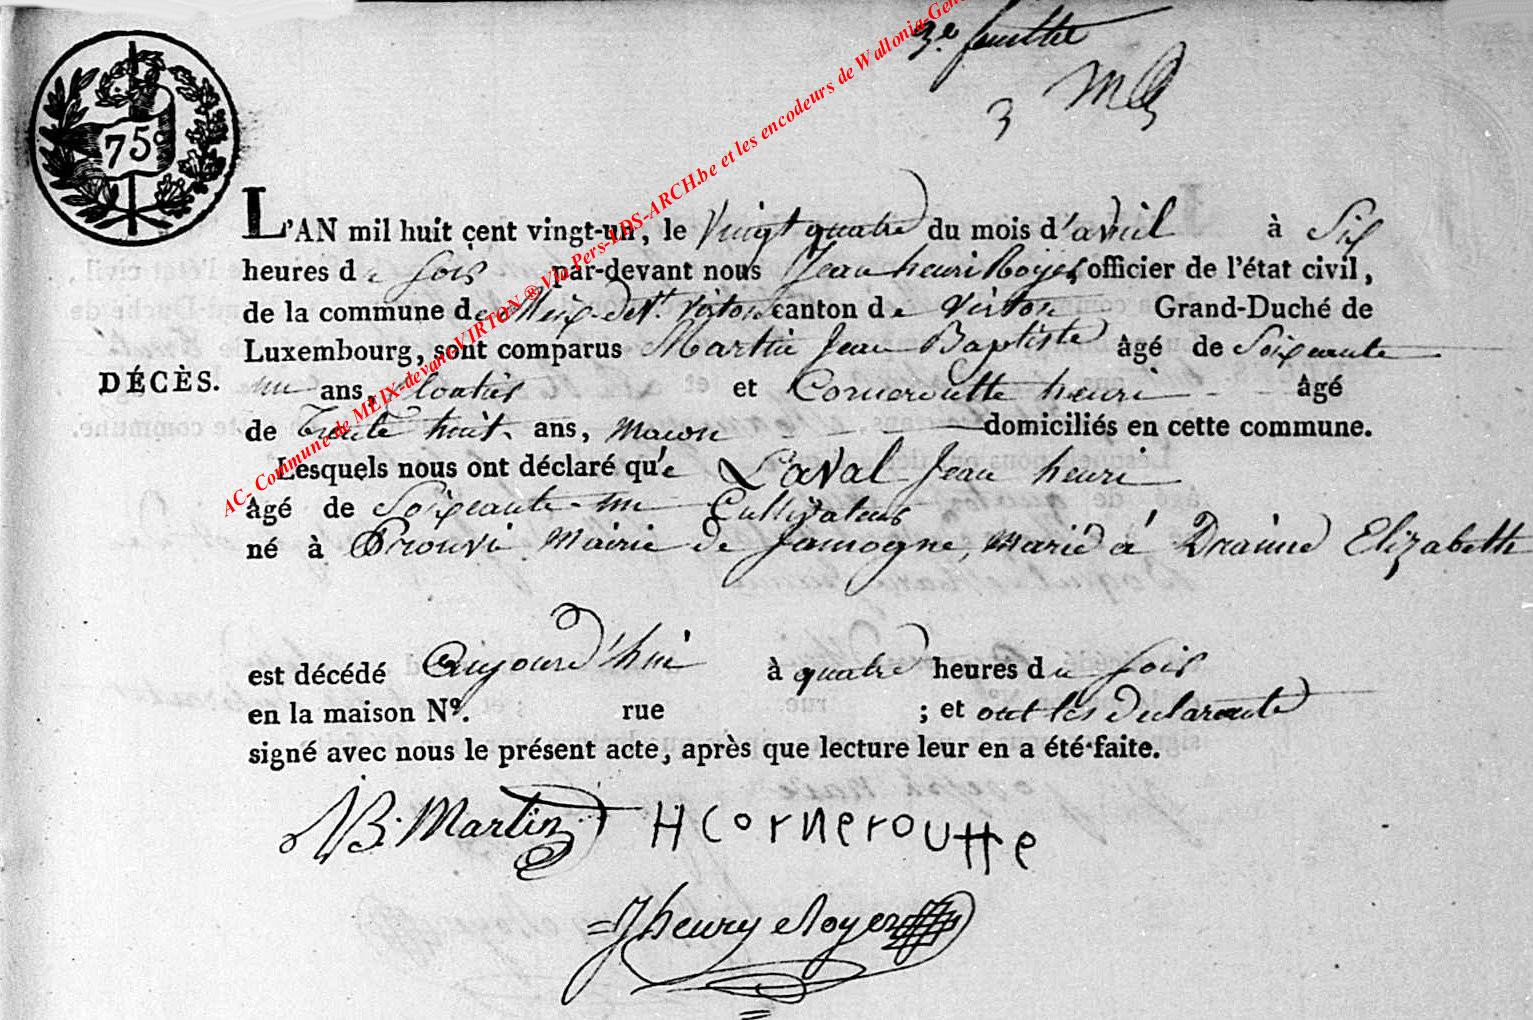 3e feuillet
3
75c
AC- Commune de MEIX-devant-VIRTON ® Via Pers-LDS-ARCH.be et les encodeurs de Wallonia-Gen
L'AN mil huit cent vingt-un, le Vingt quatre du mois d'avril à Six
heures de soir par-devant nous Jean henri Royer officier de l'état civil,
de la commune de Meix devt. virton canton de virton Grand-Duché de
Luxembourg, sont comparus Martin Jean Baptiste âgé de Soixante
DÉCÈS.
un ans, Cloutier et Corneroutte henri âgé
de Trente huit ans, macon domiciliés en cette commune.
Lesquels nous ont déclaré que Laval Jean henri
âgé de Soixante un Cultivateur
né à Prouvi Mairie de Jamogne, marié à Drainne Elizabette
est décédé aujourd'hui à quatre heures du soir
en la maison No. rue ; et ont les declarants
signé avec nous le présent acte, après que lecture leur en a été faite.
JB. Martin HCorneroutte
Jhenry Royer